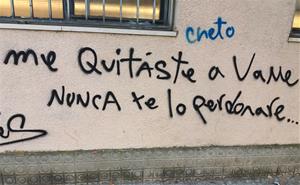 cneto
me QuitáSte a Valle
NUNCA te lo perdonare...